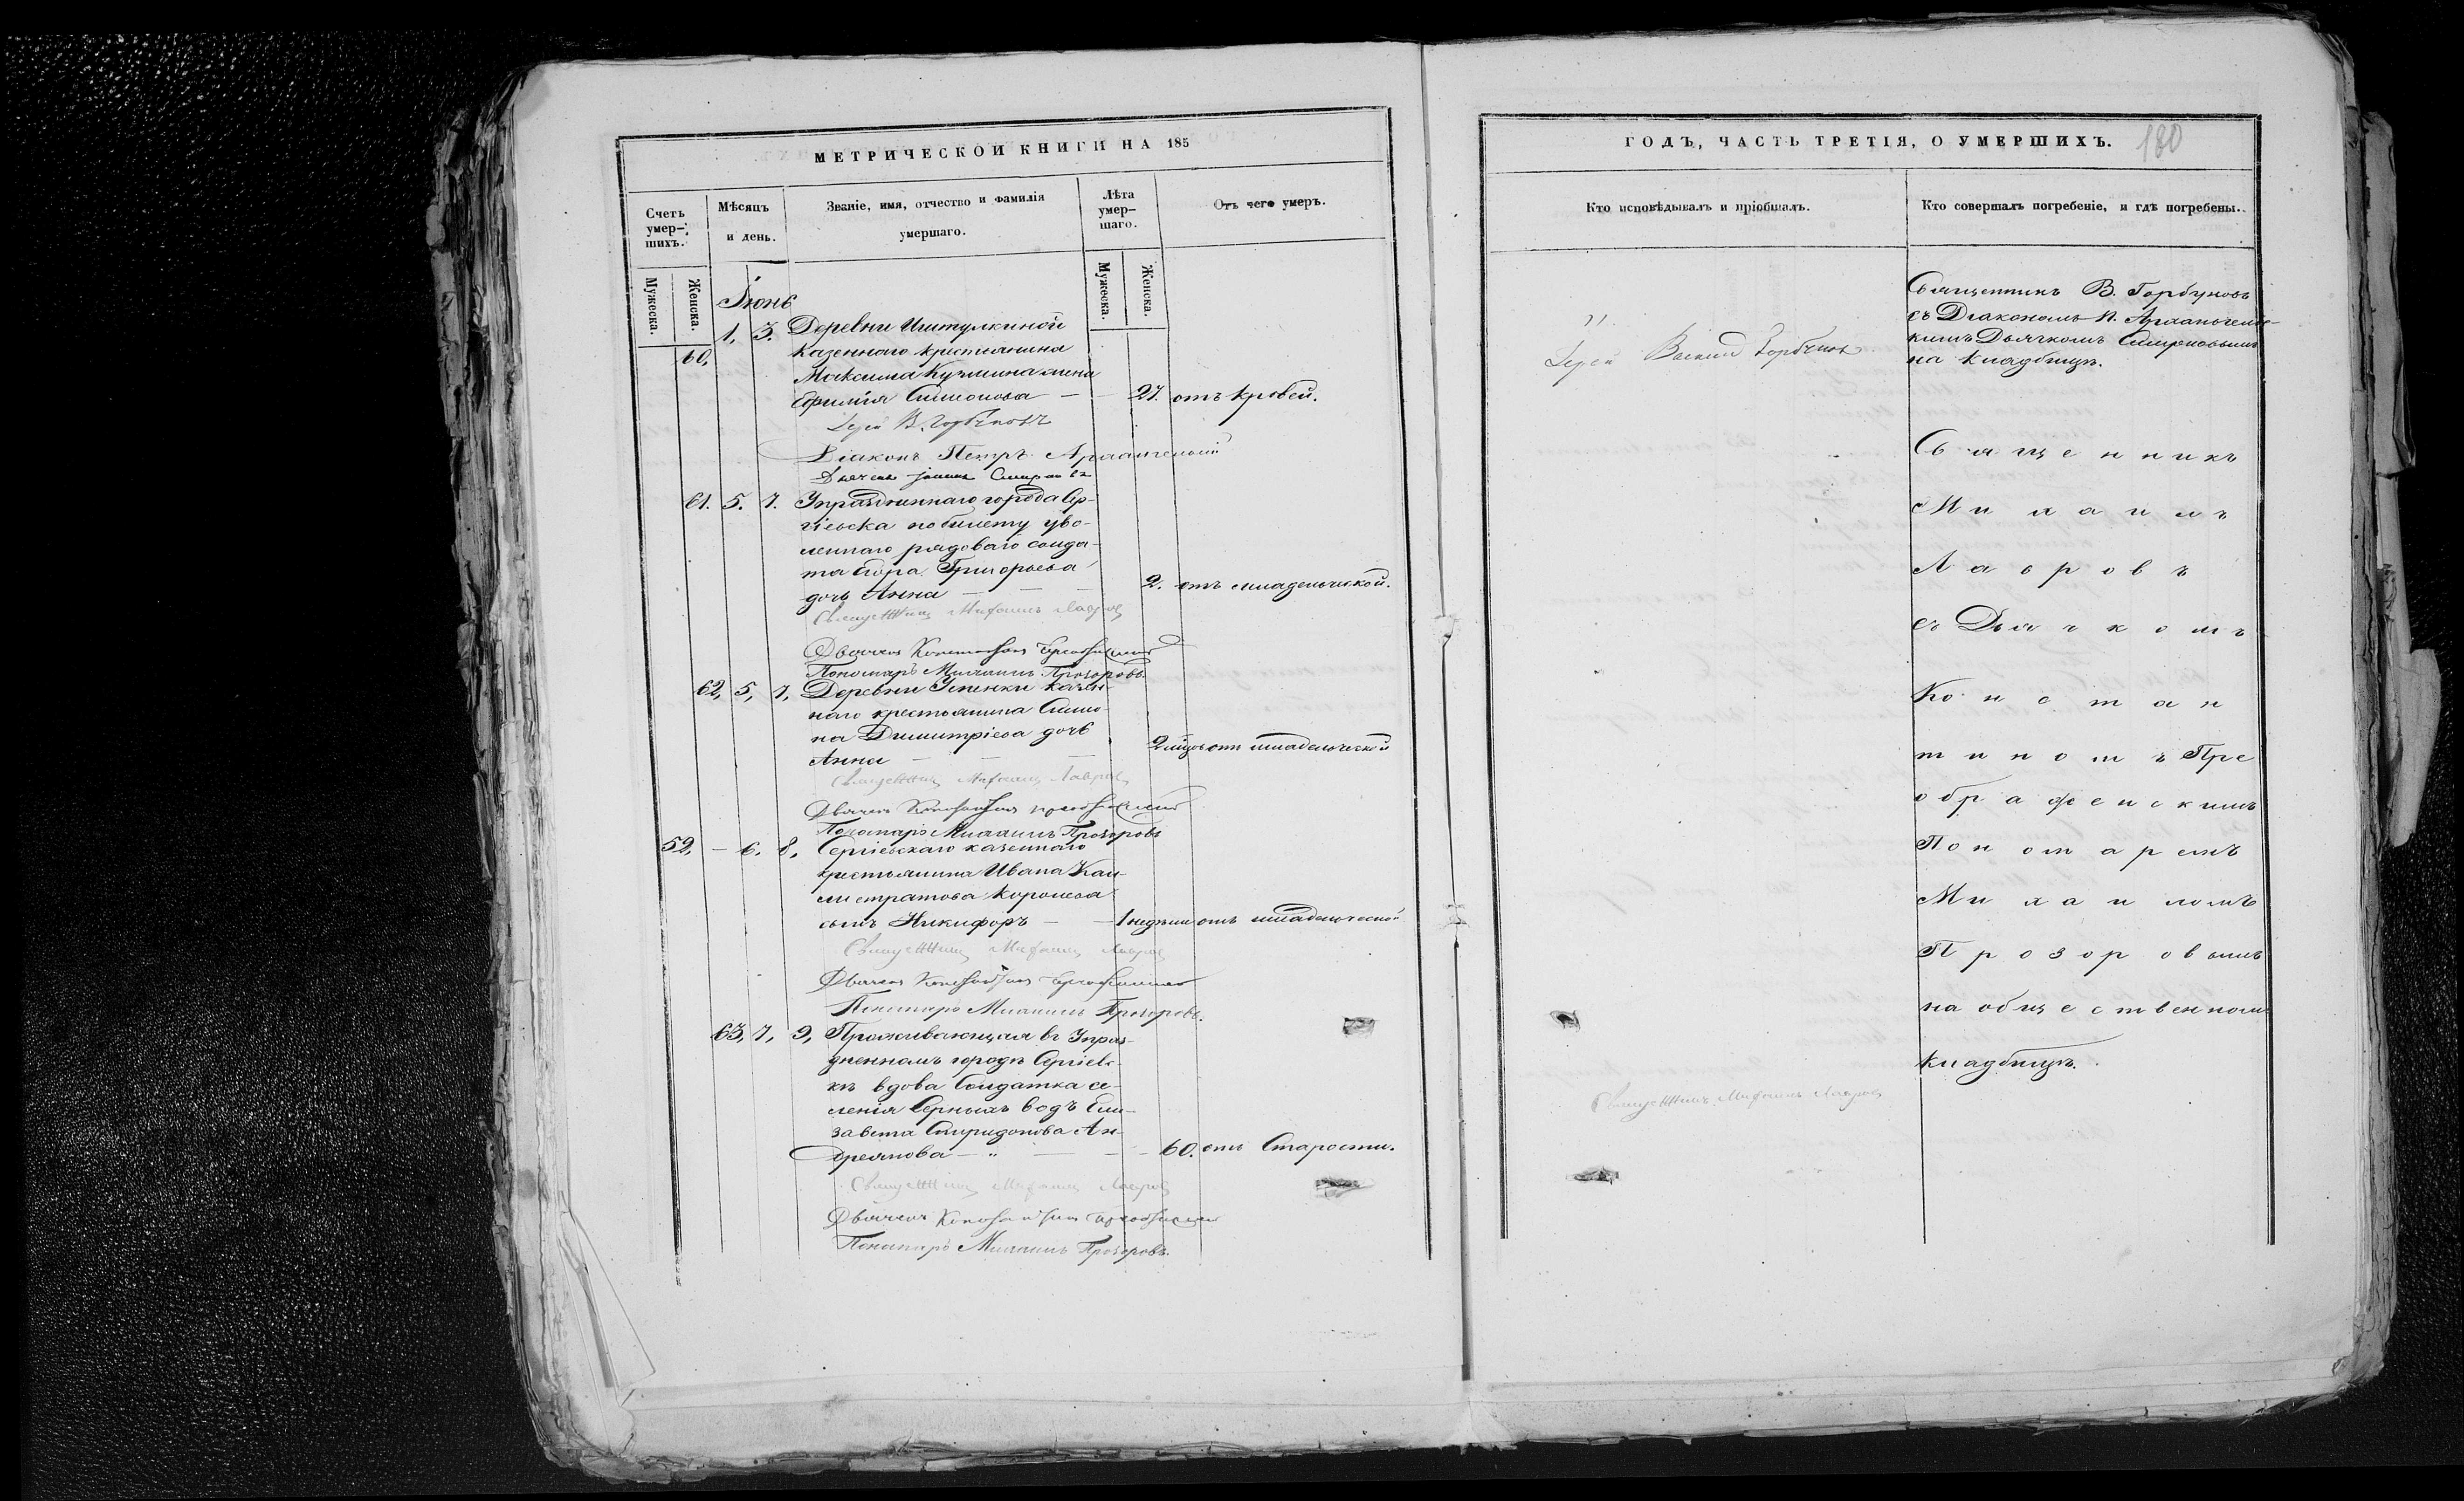 МЕТРИЧЕСКОЙ КНИГИ НА 185
Счетъ умер-шихъ.
Мужеска.
Женска.
Мѣсяцъ и день.
Званіе, имя, отчество и фамилія умершаго.
Лѣта умер-шаго.
Мужеска.
Женска.
Отъ чего умеръ.
Іюнь
60, 1, 3. Деревни Ишутулкиной
казеннаго крестьянина
Максима Кузмина жена
Ефимія Симонова — 27. отъ кровей.
Іерей В. Горбуновъ
Діаконъ Петръ Архангельскій
Дьячекъ Іоаннъ Смирновъ
61. 5. 7. Упраздненнаго города Сер-
гіевска по билету уво-
леннаго рядоваго солда-
та Егора Григорьева
дочь Анна — — — 2. отъ младенческой.
Священникъ Михаилъ Лавровъ
Дьячекъ Константинъ Преображенскій
Пономарь Михаилъ Прозоровъ
62, 5, 7, Деревни Успенки казен-
наго крестьянина Симо-
на Димитріева дочь
Анна — — — 2 мѣся отъ младенческой
Священникъ Михаилъ Лавровъ
Дьячекъ Константинъ Преображенскій
Пономарь Михаилъ Прозоровъ
52, — 6. 8, Сергіевскаго казеннаго
крестьянина Ивана Кал-
листратова Королева
сынъ Никифоръ — — 1 недѣли отъ младенческой
Священникъ Михаилъ Лавровъ
Дьячекъ Константинъ Преображенскій
Пономарь Михаилъ Прозоровъ.
63, 7, 9, Проживающая въ Упраз-
дненномъ городѣ Сергіевс-
кѣ вдова Солдатка се-
ленія Серныхъ водъ Ели-
завета Спиридонова Ан-
дреянова — „ — — 60. отъ Старости.
Священникъ Михаилъ Лавровъ
Дьячекъ Константинъ Преображенскій
Пономарь Михаилъ Прозоровъ.
ГОДЪ, ЧАСТЬ ТРЕТІЯ, О УМЕРШИХЪ.
180
Кто исповѣдывалъ и пріобщалъ.
Кто совершалъ погребеніе, и гдѣ погребены.
Іерей Василій Горбуновъ
Священникъ В. Горбуновъ
съ Діакономъ П. Архангельс-
кимъ Дьячкомъ Смирновымъ
на кладбищѣ.
Священникъ
Михаилъ
Лавровъ
съ Дьячкомъ
Констан
тиномъ Пре
ображенскимъ
Пономаремъ
Михаиломъ
Прозоровымъ
на общественномъ
кладбищѣ.
Священникъ Михаилъ Лавровъ